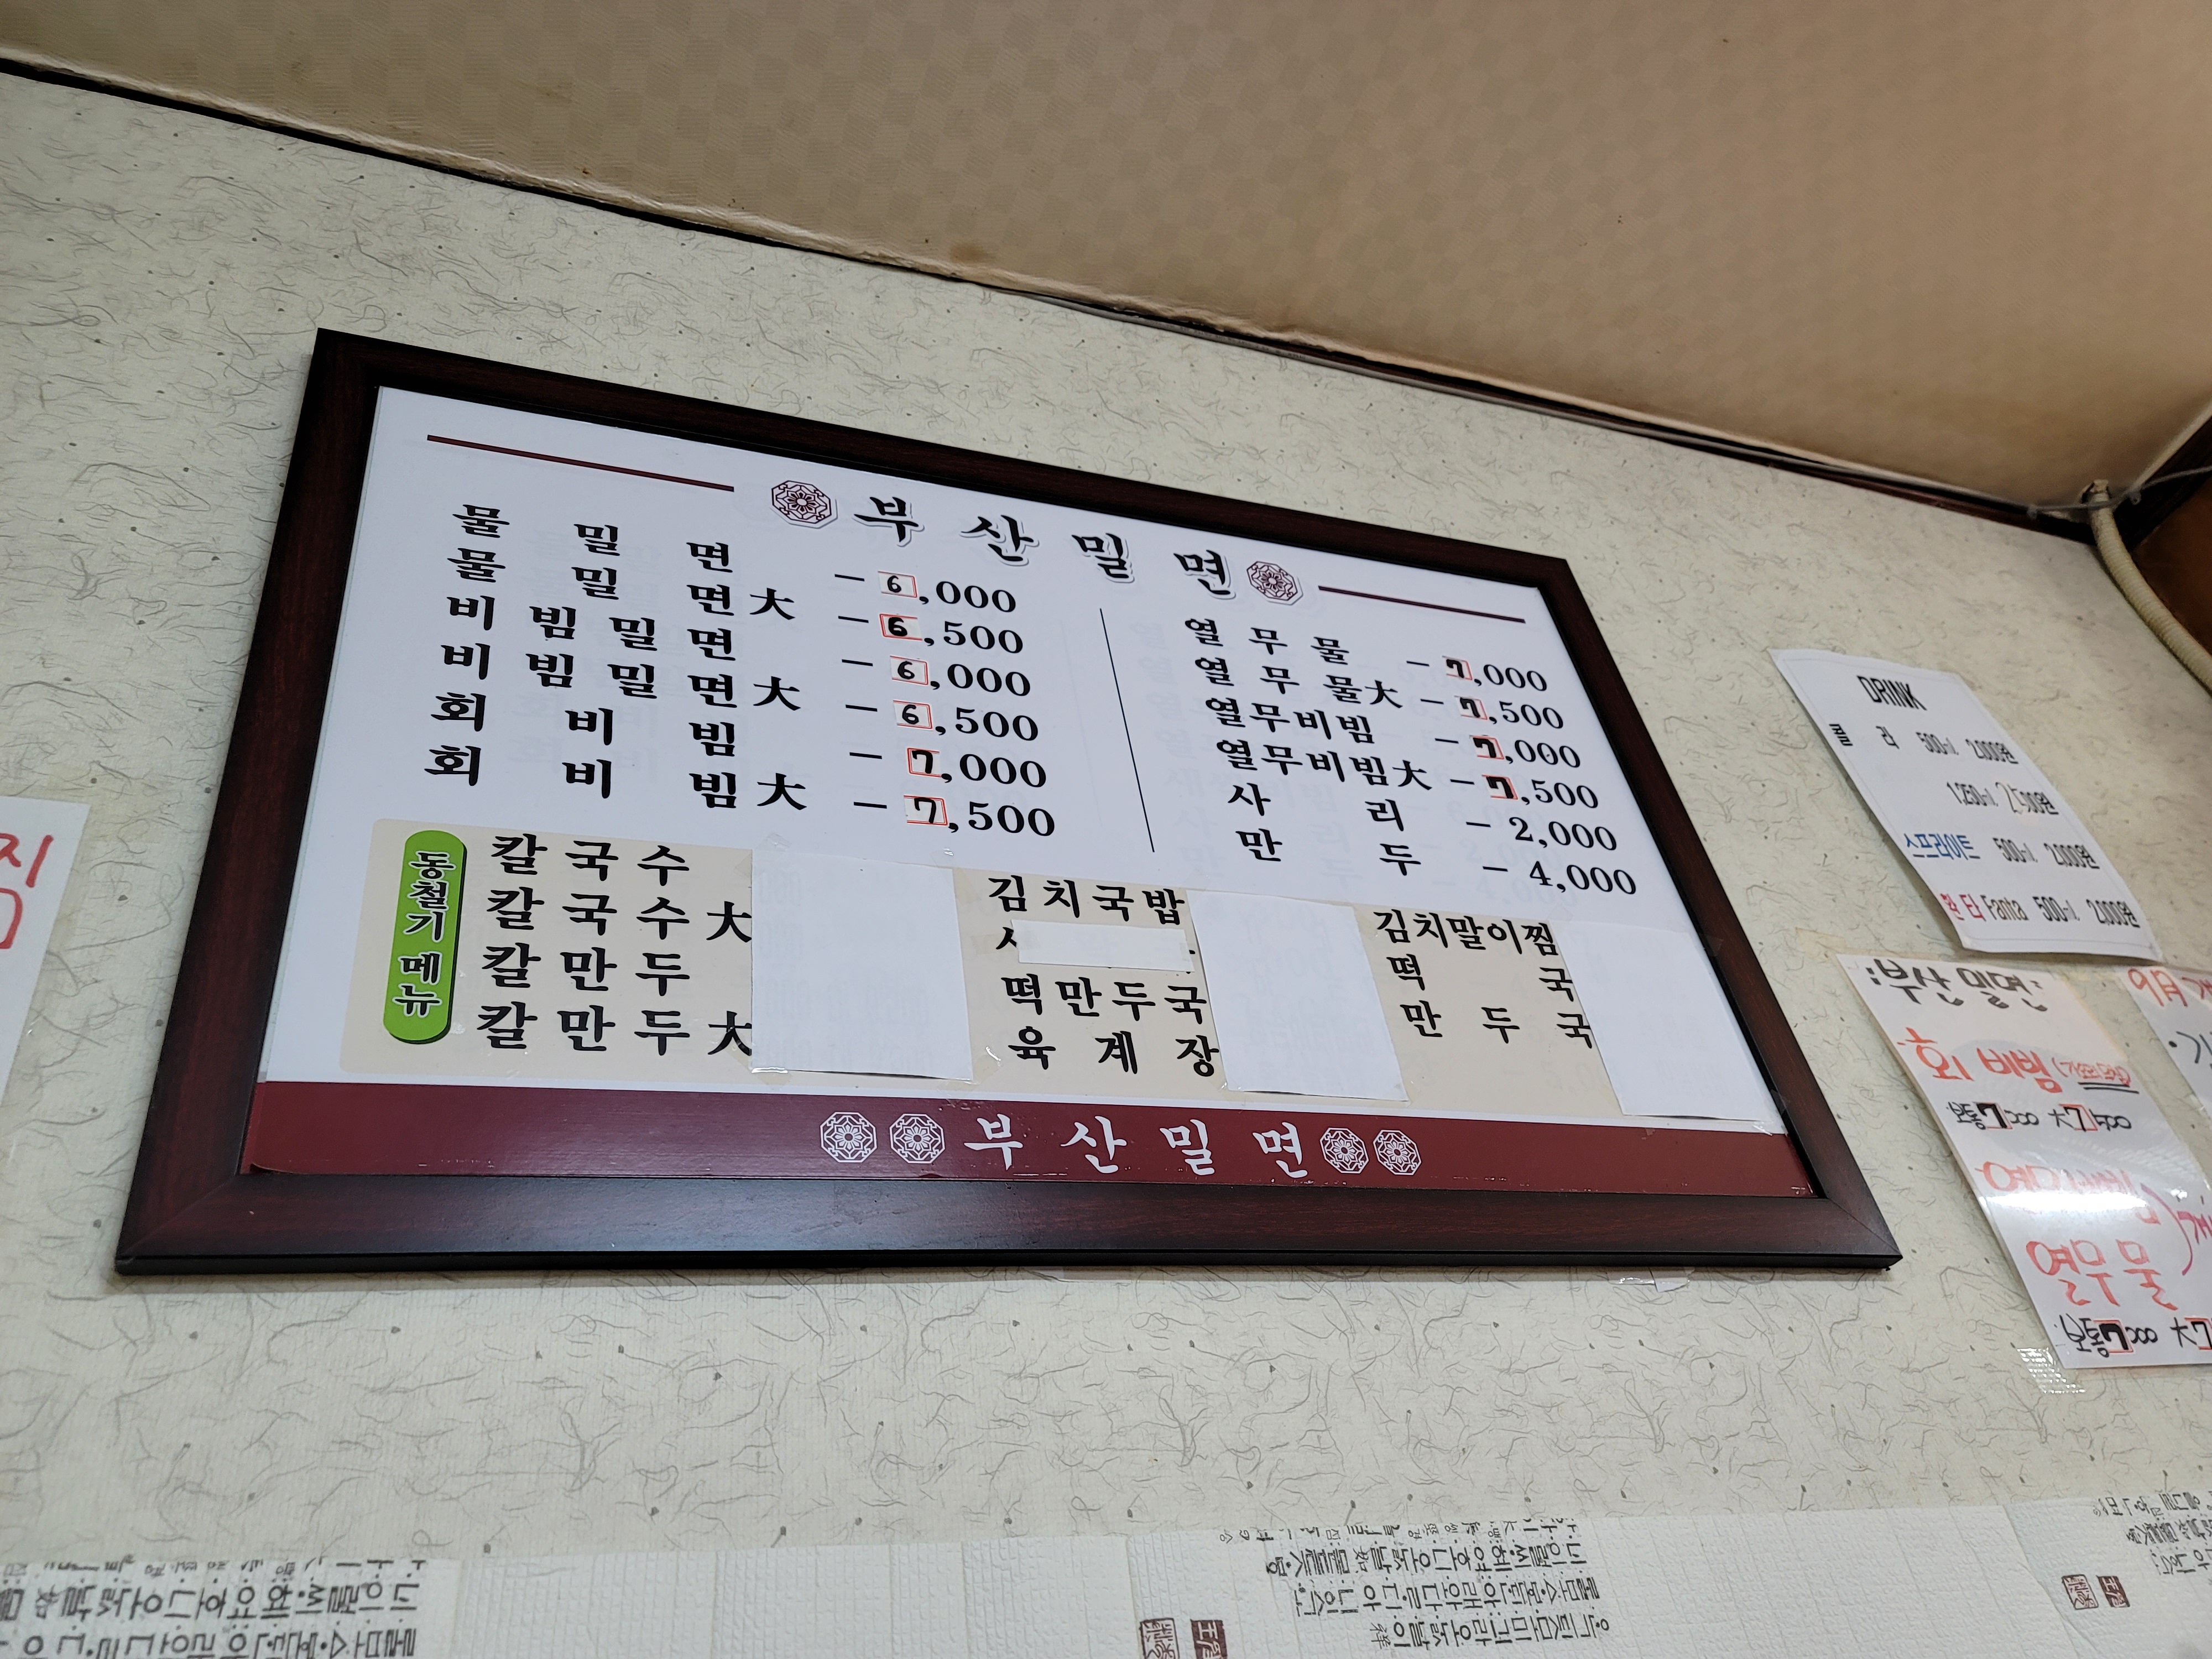 부산밀면
물밀면 - 6,000
물밀면大 - 6,500
비빔밀면 - 6,000
비빔밀면大 - 6,500
회비빔 - 7,000
회비빔大 - 7,500
열무물 - 7,000
열무물大 - 7,500
열무비빔 - 7,000
열무비빔大 - 7,500
사리 - 2,000
만두 - 4,000
동철기 메뉴
칼국수
칼국수大
칼만두
칼만두大
김치국밥
떡만두국
육계장
김치말이찜
떡국
만두국
부산밀면
DRINK
콜라 500ml 2,000원
1.250ml 2,500원
스프라이트 500ml 2,000원
환타 Fanta 500ml 2,000원
부산밀면
회비빔
보통 7000 大 7500
열무비빔
열무물
보통 7000 大 7
9月